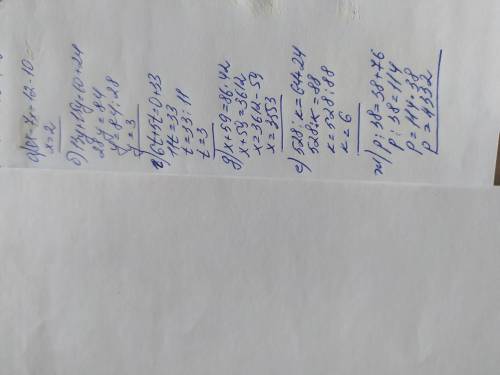 x = 2
28y = 84
y = 84 : 28
y = 3
г) 6t + 5t = 0 + 33
11t = 33
t = 33 : 11
t = 3
д) x + 59 = 86 · 42
x + 59 = 3612
x = 3612 - 59
x = 3553
е) 528 : к = 64 + 24
528 : к = 88
к = 528 : 88
к = 6
ж) p : 38 = 38 + 76
p : 38 = 114
p = 114 · 38
p = 4332